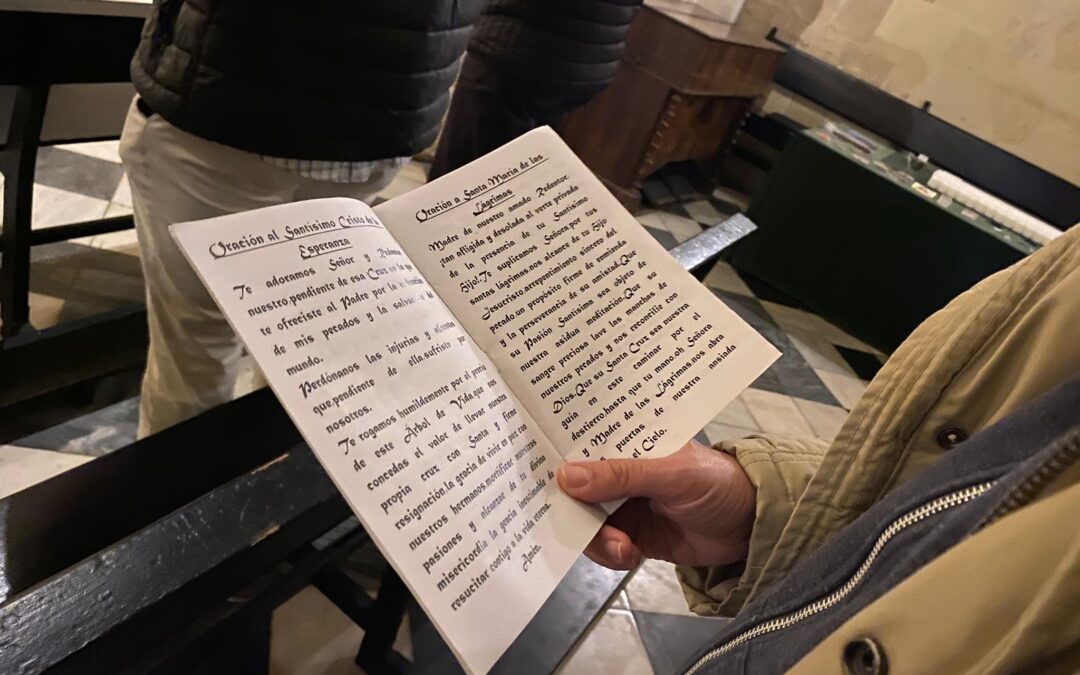 Oración al Santisimo Cristo de la
Esperanza
Te adoramos Señor y Redentor
nuestro,pendiente de esa Cruz en la que
te ofreciste al Padre por la
de mis pecados y la salvación del
mundo.
Perdónanos las injurias y afrentas
que,pendiente de ella,sufriste por
nosotros.
Te rogamos humildemente por el precio
de este Arbol de Vida,que nos
concedas el valor de llevar nuestra
propia cruz con Santa y firme
resignación,la gracia de vivir en paz con
nuestros hermanos,mortificar nuestras
pasiones y alcanzar de tu divina
misericordia la gracia inestimable de
resucitar contigo a la vida eterna.
Amén.
Oración a Santa María de las
Lágrimas
Madre de nuestro amado Redentor,
¡tan afligida y desolada al verte privada
de la presencia de tu Santisimo
Hijo!.Te suplicamos Señora,por tus
santas lágrimas,nos alcance de tu Hijo
Jesucristo,arrepentimiento sincero del
pecado,un propósito firme de enmienda
y la perseverancia de su amistad.Que
su Pasión Santisima sea objeto de
nuestra asidua meditación.Que su
sangre preciosa lave las manchas de
nuestros pecados y nos reconcilie con
Dios.Que su Santa Cruz sea nuestra
guia en este caminar por el
destierro,hasta que tu mano,oh Señora
y Madre de las Lágrimas,nos abra
puertas de nuestro ansiada
el Cielo.